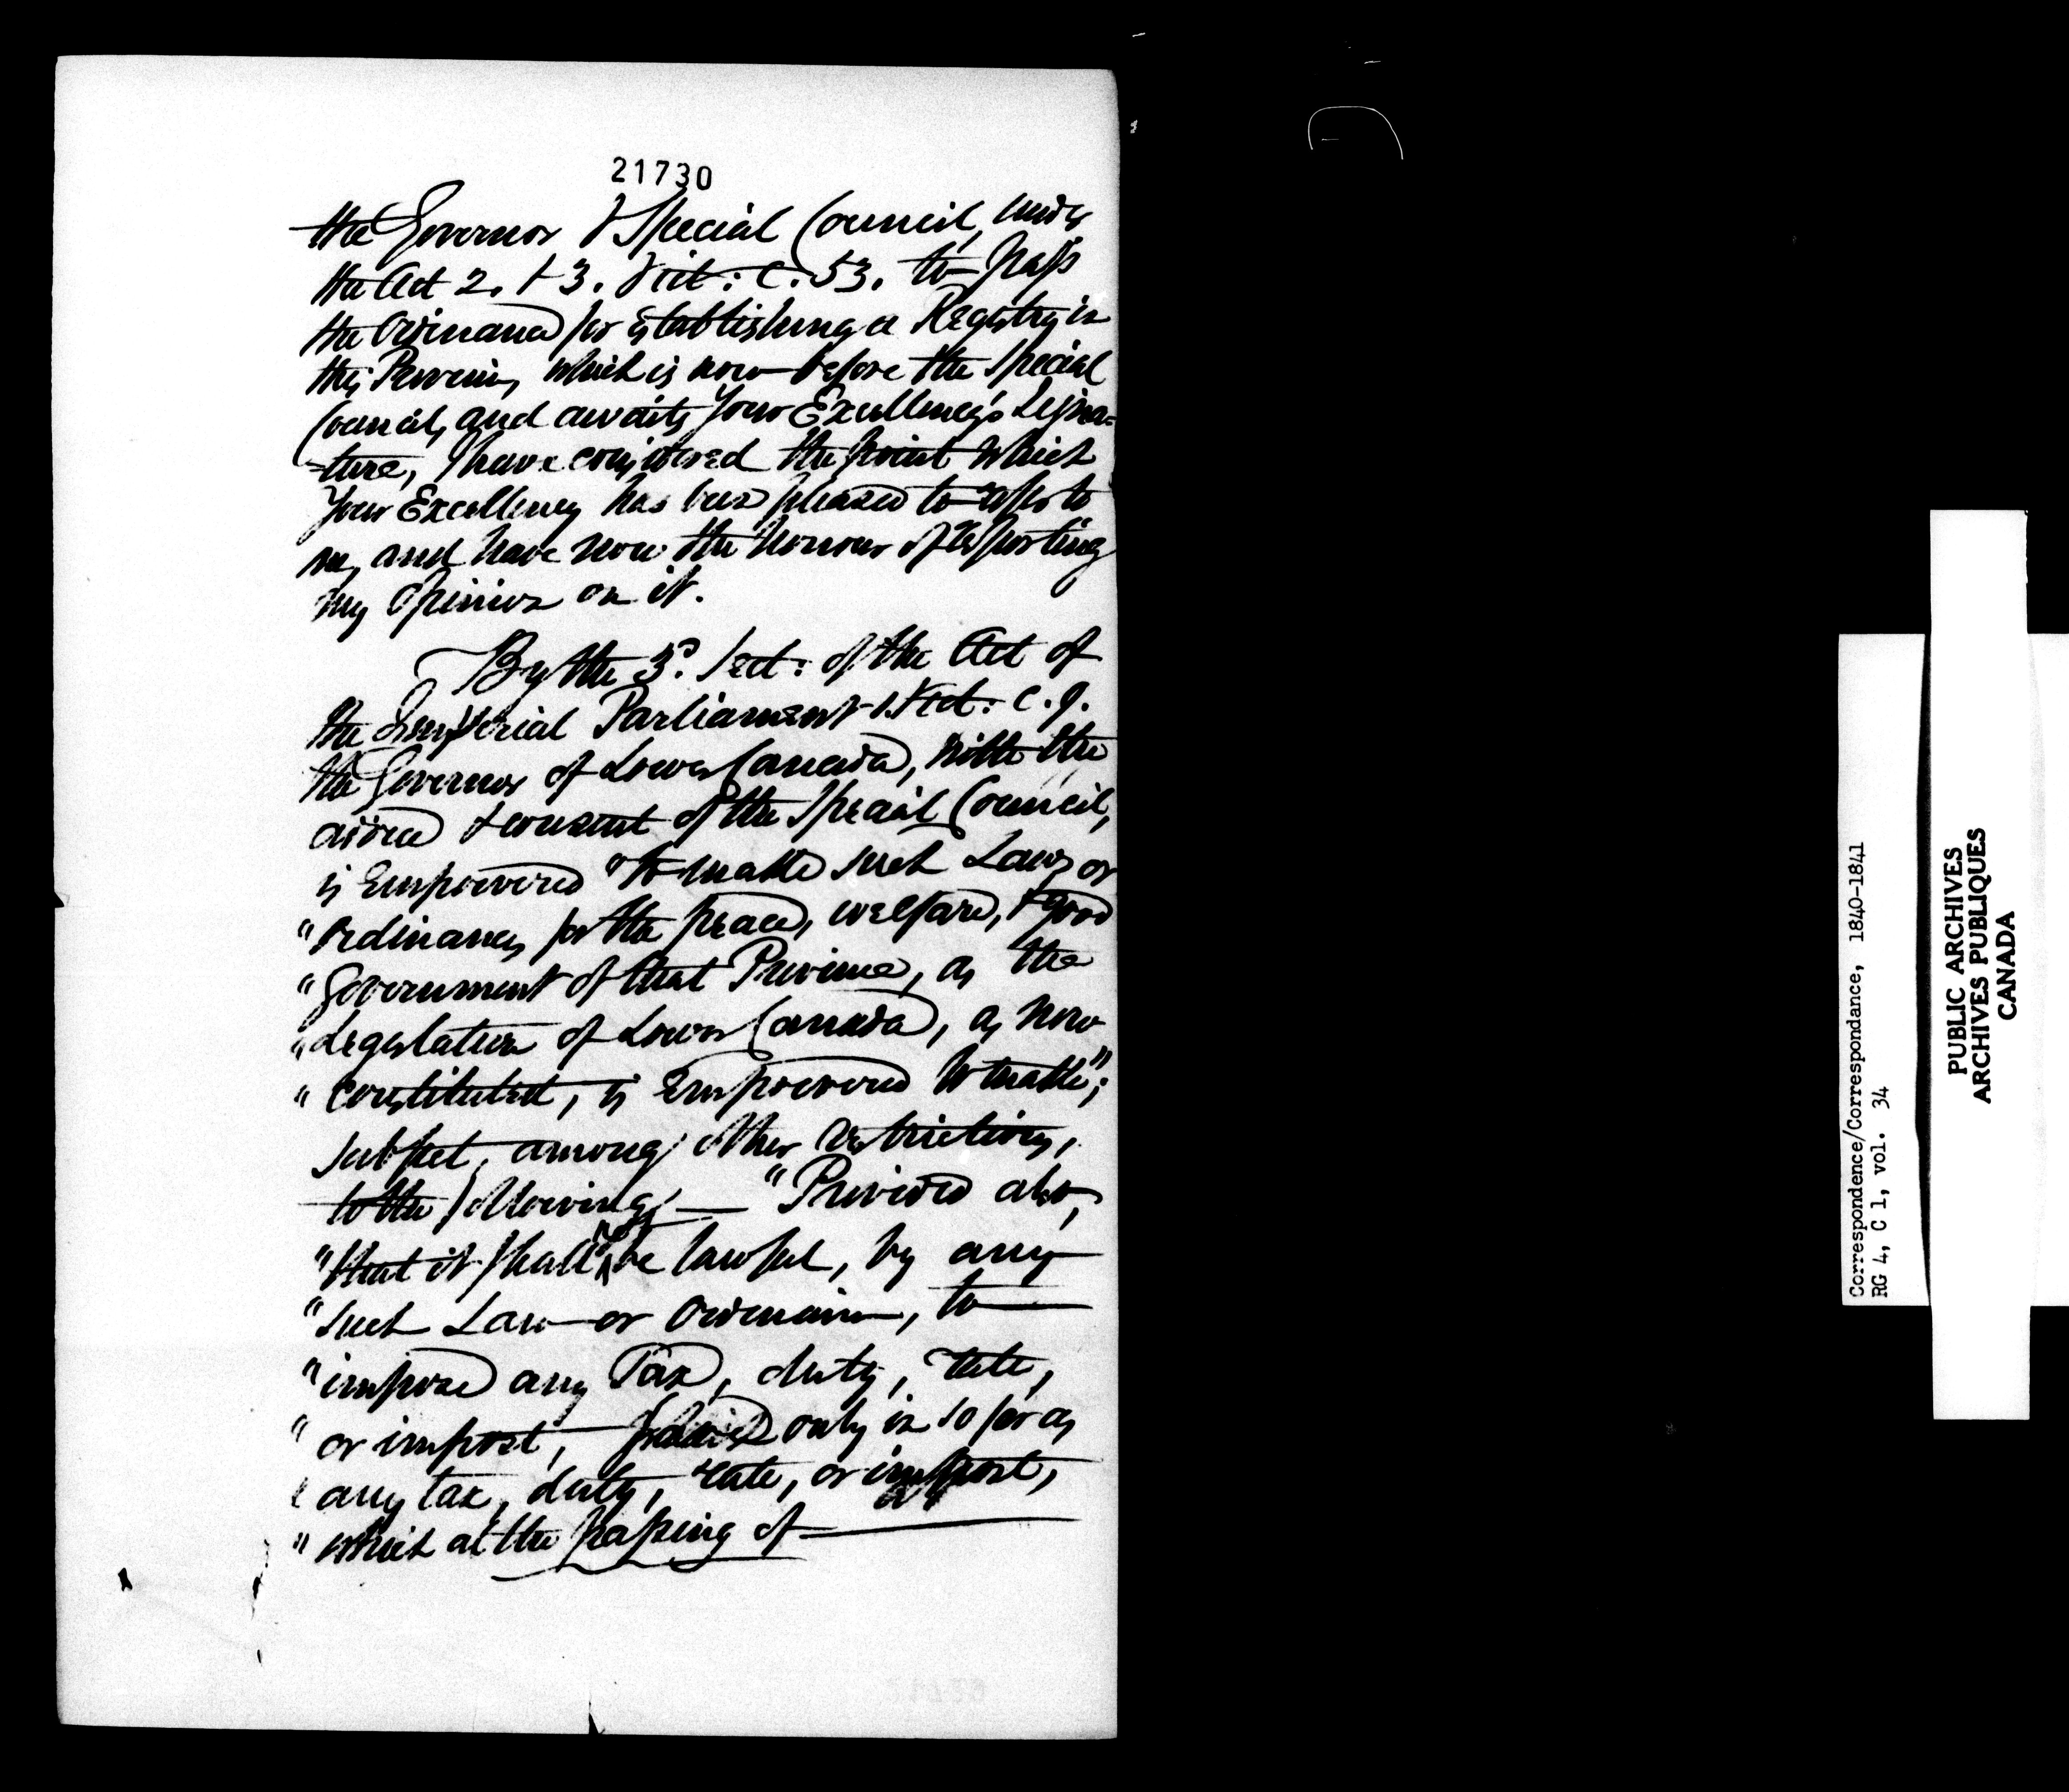 21730
the Governor & Special Council, under
the Act 2. & 3. Vict: c. 53. to pass
the Ordinance for establishing a Registry in
this Province, which is now before the Special
Council, and awaits Your Excellency's Signa-
-ture, I have considered the point which
Your Excellency has been pleased to refer to
me, and have now the honour of reporting
my opinion on it.
By the 3d. Sect: of the Act of
the Imperial Parliament 1. Vict: c. 9.
the Governor of Lower Canada, with the
advice & consent of the Special Council,
is empowered "to make such Laws or
"Ordinances for the peace, welfare, & good
"Government of that Province, as the
"Legislature of Lower Canada, as now
"constituted, is empowered to make";
subject, among other restrictions,
to the following: — "Provided also,
"that it shall not be lawful, by any
"such Law or Ordinance, to
"impose any Tax, duty, rate,
"or impost, only in so far as
"any tax, duty, rate, or impost,
"which at the passing of
Correspondence/Correspondance, 1840-1841
RG 4, C 1, vol. 34
PUBLIC ARCHIVES
ARCHIVES PUBLIQUES
CANADA